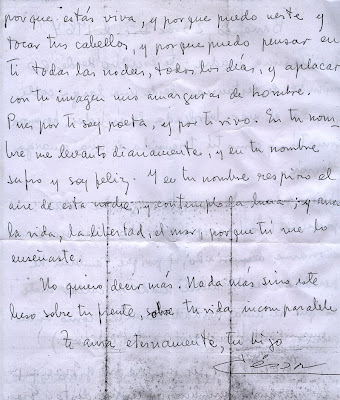 porque estás viva, y porque puedo verte y
tocar tus cabellos, y porque puedo pensar en
ti todas las noches, todos los días, y aplacar
con tu imagen mis amarguras de hombre.
Pues por ti soy poeta, y por ti vivo. En tu nom-
bre me levanto diariamente, y en tu nombre
sufro y soy feliz. Y en tu nombre respiro el
aire de esta noche, y contemplo la luna, y amo
la vida, la libertad, el mar, porque tú me lo
enseñaste.
No quiero decir más. Nada más sino este
beso sobre tu frente, sobre tu vida incomparable
Te ama eternamente, tu hijo
César